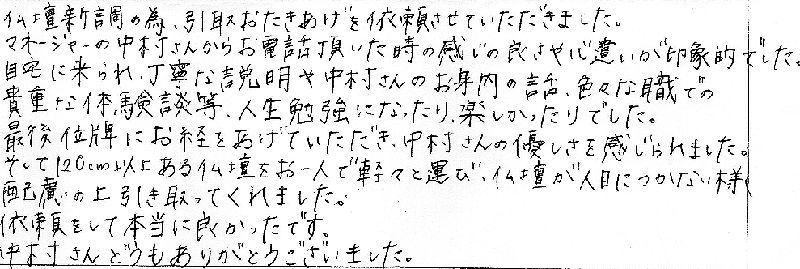 仏壇新調の為、引取おたきあげを依頼させていただきました。
マネージャーの中村さんからお電話頂いた時の感じの良さや心遣いが印象的でした。
自宅に来られ、丁寧な説明や中村さんのお身内の話、色々な職での
貴重な体験談等、人生勉強になったり、楽しかったりでした。
最後位牌にお経をあげていただき、中村さんの優しさを感じられました。
そして120cm以上ある仏壇をお一人で軽々と運び、仏壇が人目につかない様
配慮の上引き取ってくれました。
依頼をして本当に良かったです。
中村さんどうもありがとうございました。